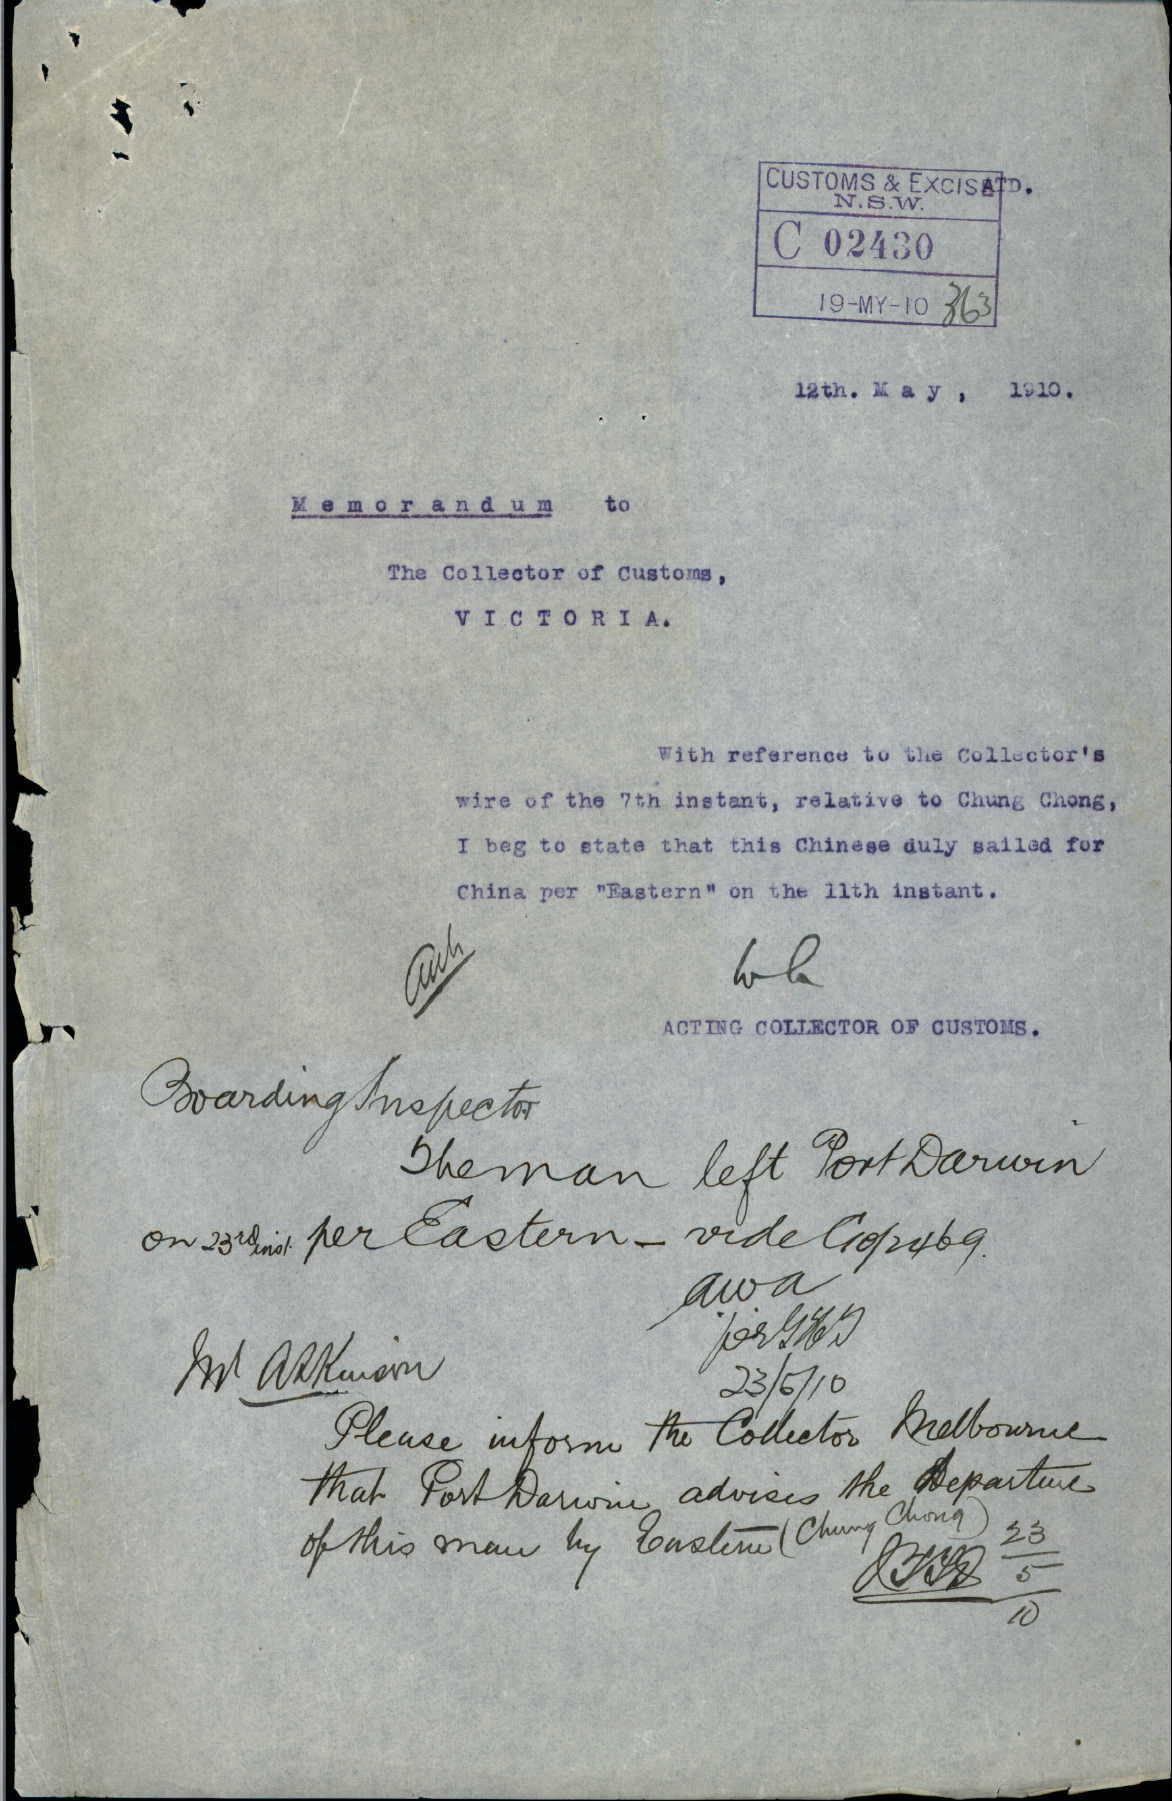 CUSTOMS & EXCISE ATD.
N.S.W.
C 02430
19-MY-10 363
12th. M a y , 1910.
M e m o r a n d u m to
The Collector of Customs,
V I C T O R I A.
With reference to the Collector's
wire of the 7th instant, relative to Chung Chong,
I beg to state that this Chinese duly sailed for
China per "Eastern" on the 11th instant.
ACTING COLLECTOR OF CUSTOMS.
Boarding Inspector
The man left Port Darwin
on 23rd inst. per Eastern - vide C10/2469.
awa
per
23/5/10
Mr Atkinson
Please inform the Collector Melbourne
that Port Darwin advises the Departure
of this man by Eastern (Chung Chong)
23
5
10